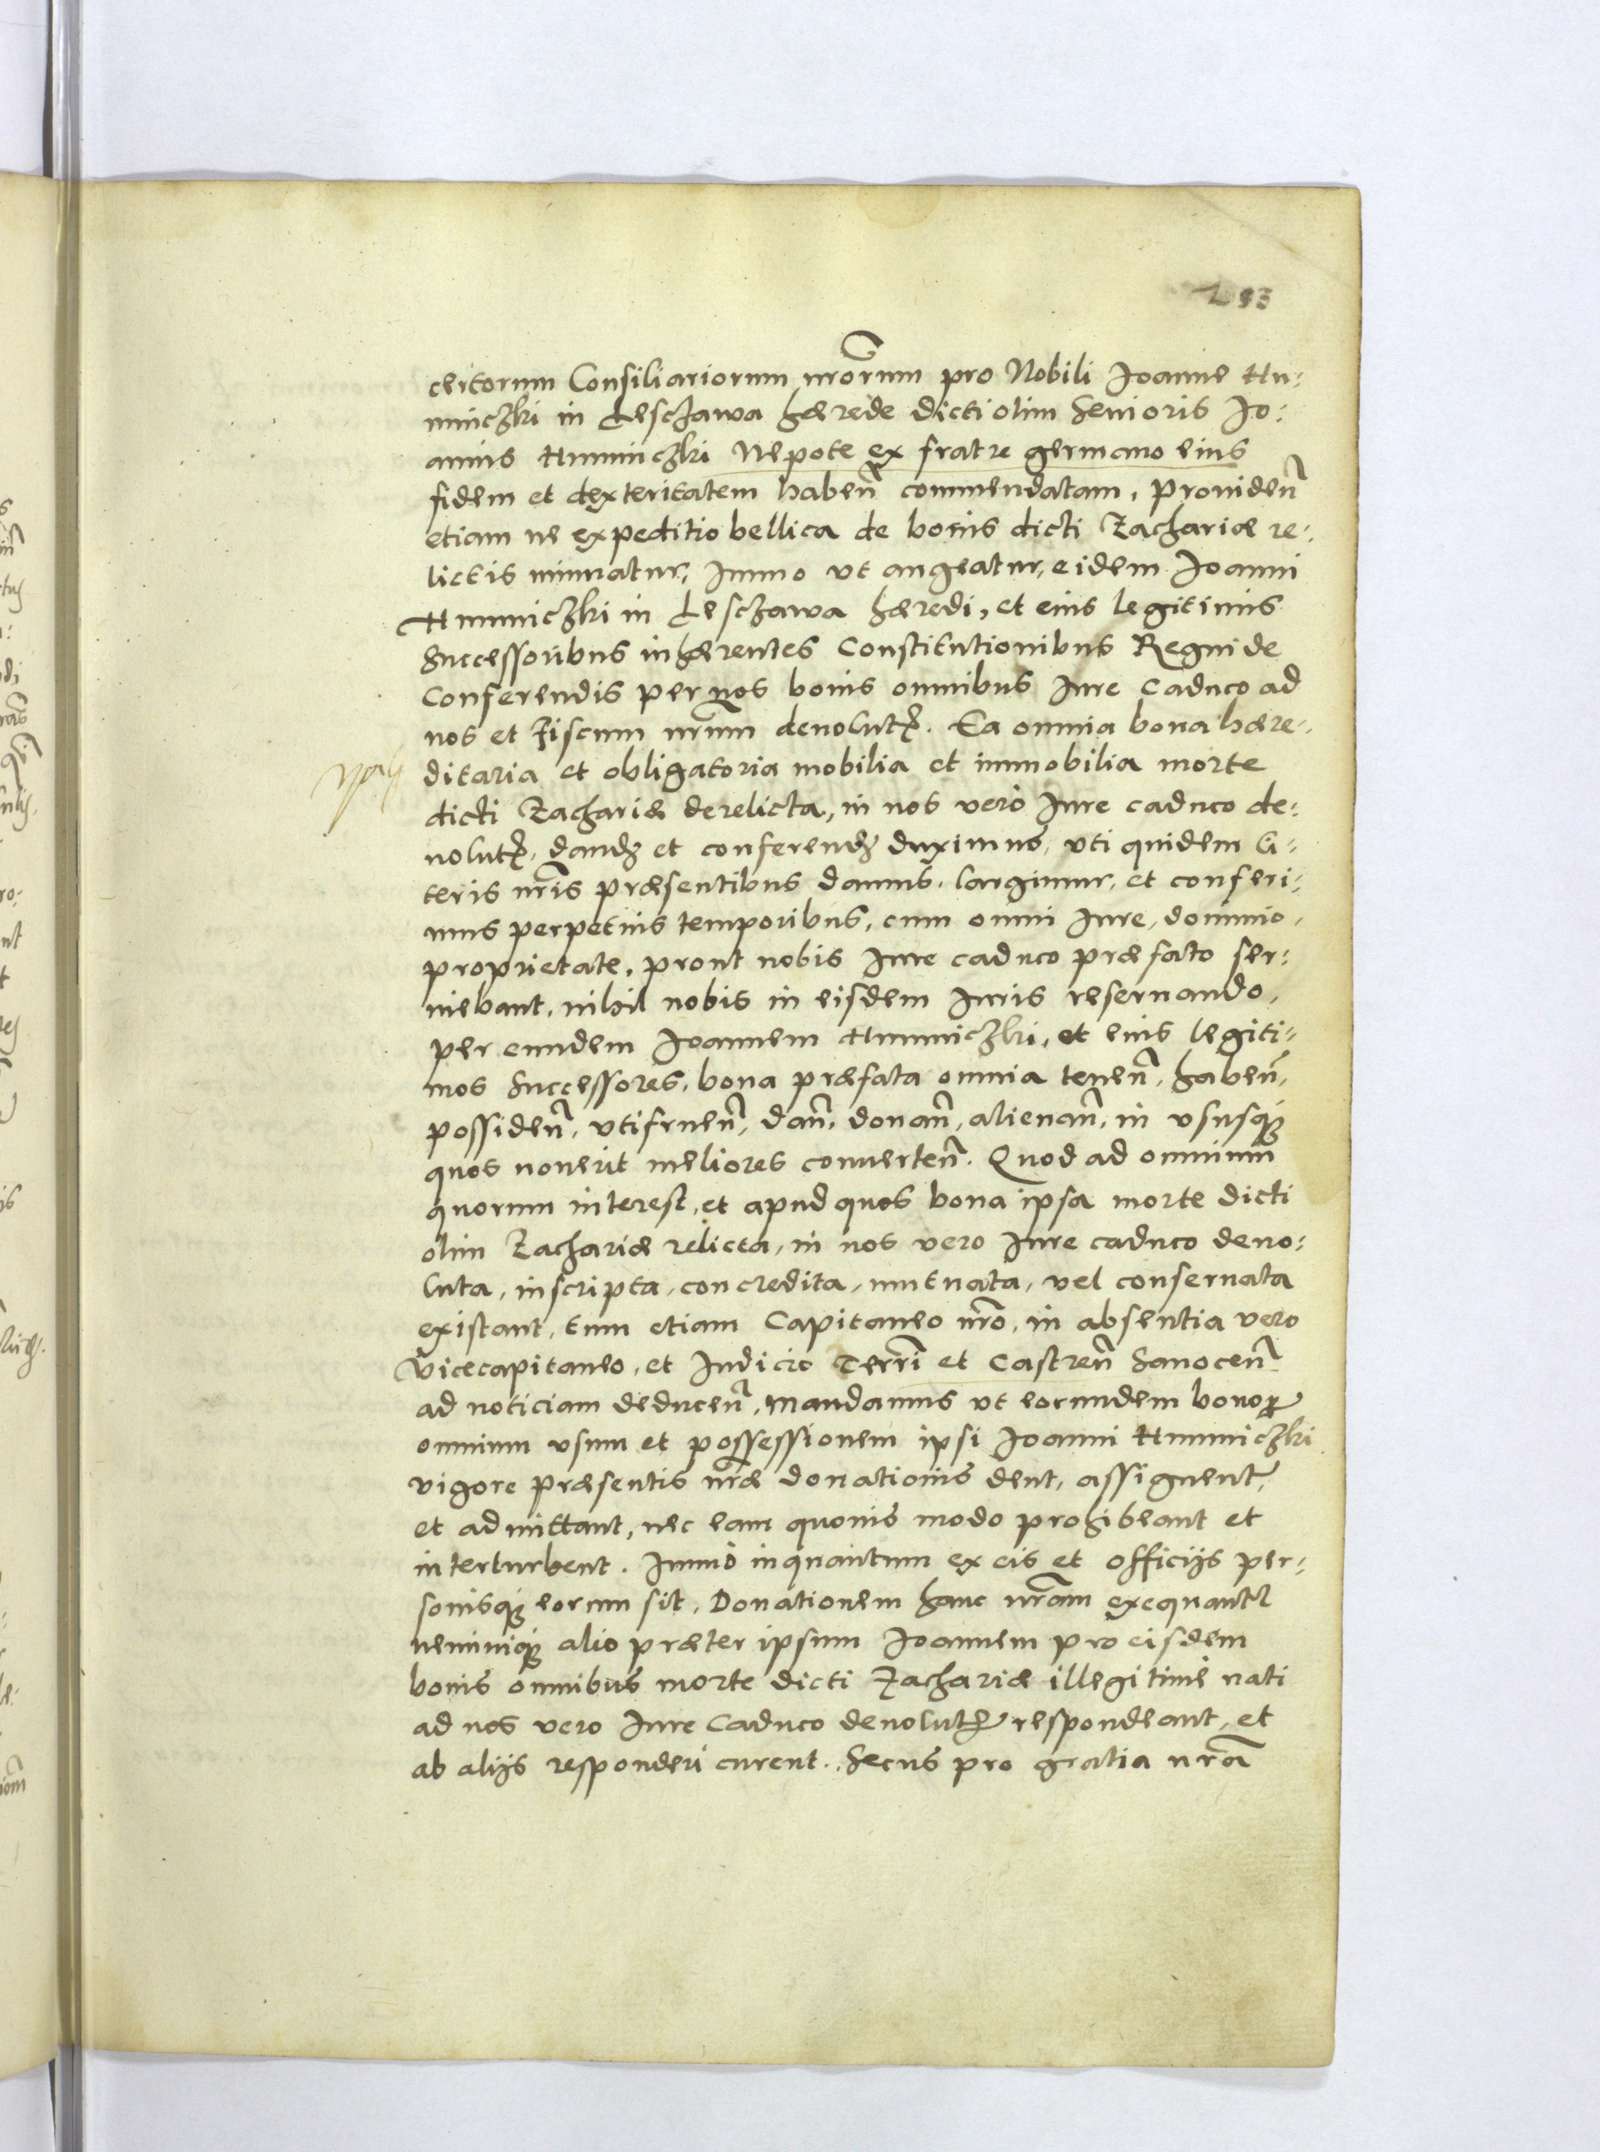 293
certorum Consiliariorum nrõrum pro Nobili Joanne Hu-
miniczki in Lesczawa hærede dicti olim Senioris Jo-
annis Humniczki Nepote ex fratre germano eius
fidem et dexteritatem habeñ commendatam, prouideñ
etiam ne expeditio bellica de bonis dicti Zachariæ re-
lictis minuatur, Immo vt augeatur, eidem Joanni
Humniczki in Lesczawa hæredi, et eius legitimis
Successoribus inhærentes Constitutionibus Regni de
Conferendis per nos bonis omnibus Jure Caduco ad
nos et Fiscum nrũm deuolutʒ. Ea omnia bona hære-
ditaria et obligatoria mobilia et immobilia morte
dicti Zachariæ derelicta, in nos verò Jure caduco de-
uolutʒ, dandʒ et conferendʒ duximus, vti quidem li-
teris nrĩs præsentibus damus, largimur, et conferi-
mus perpetuis temporibus, cum omni Jure, dominio,
proprietate, prout nobis Jure caduco præfato ser-
uiebant, nihil nobis in eisdem Juris reseruando,
per eundem Joannem Humniczki, et eius legiti-
mos Successores, bona præfata omnia teneñ, habeñ,
possideñ, vtifrueñ, dañ, donañ, alienañ, in vsusqʒ
quos nouerit meliores conuerteñ. Quod ad omnium
quorum interest, et apud quos bona ipsa morte dicti
olim Zachariæ relicta, in nos vero Jure caduco deuo-
luta, inscripta, concredita, mutuata, vel conseruata
existant, tum etiam Capitaneo nrõ, in absentia vero
Vicecapitaneo, et Judicio Terrĩ et Castreñ Sanoceñ
ad noticiam deduceñ, Mandamus vt eorundem bonoꝝ
omnium vsum et possessionem ipsi Joanni Humniczki
vigore præsentis nrãe donationis dent, assignent,
et admittant, nec eam quouis modo prohibeant et
interturbent. Immò inquantum ex eis et officijs per-
sonisqʒ eorum sit, Donationem hanc nrãm exequantur
neminiqʒ alio præter ipsum Joannem pro eisdem
bonis omnibus morte dicti Zachariæ illegitimè nati
ad nos vero Jure Caduco deuolutʒ respondeant, et
ab alijs responderi curent. Secus pro gratia nrã